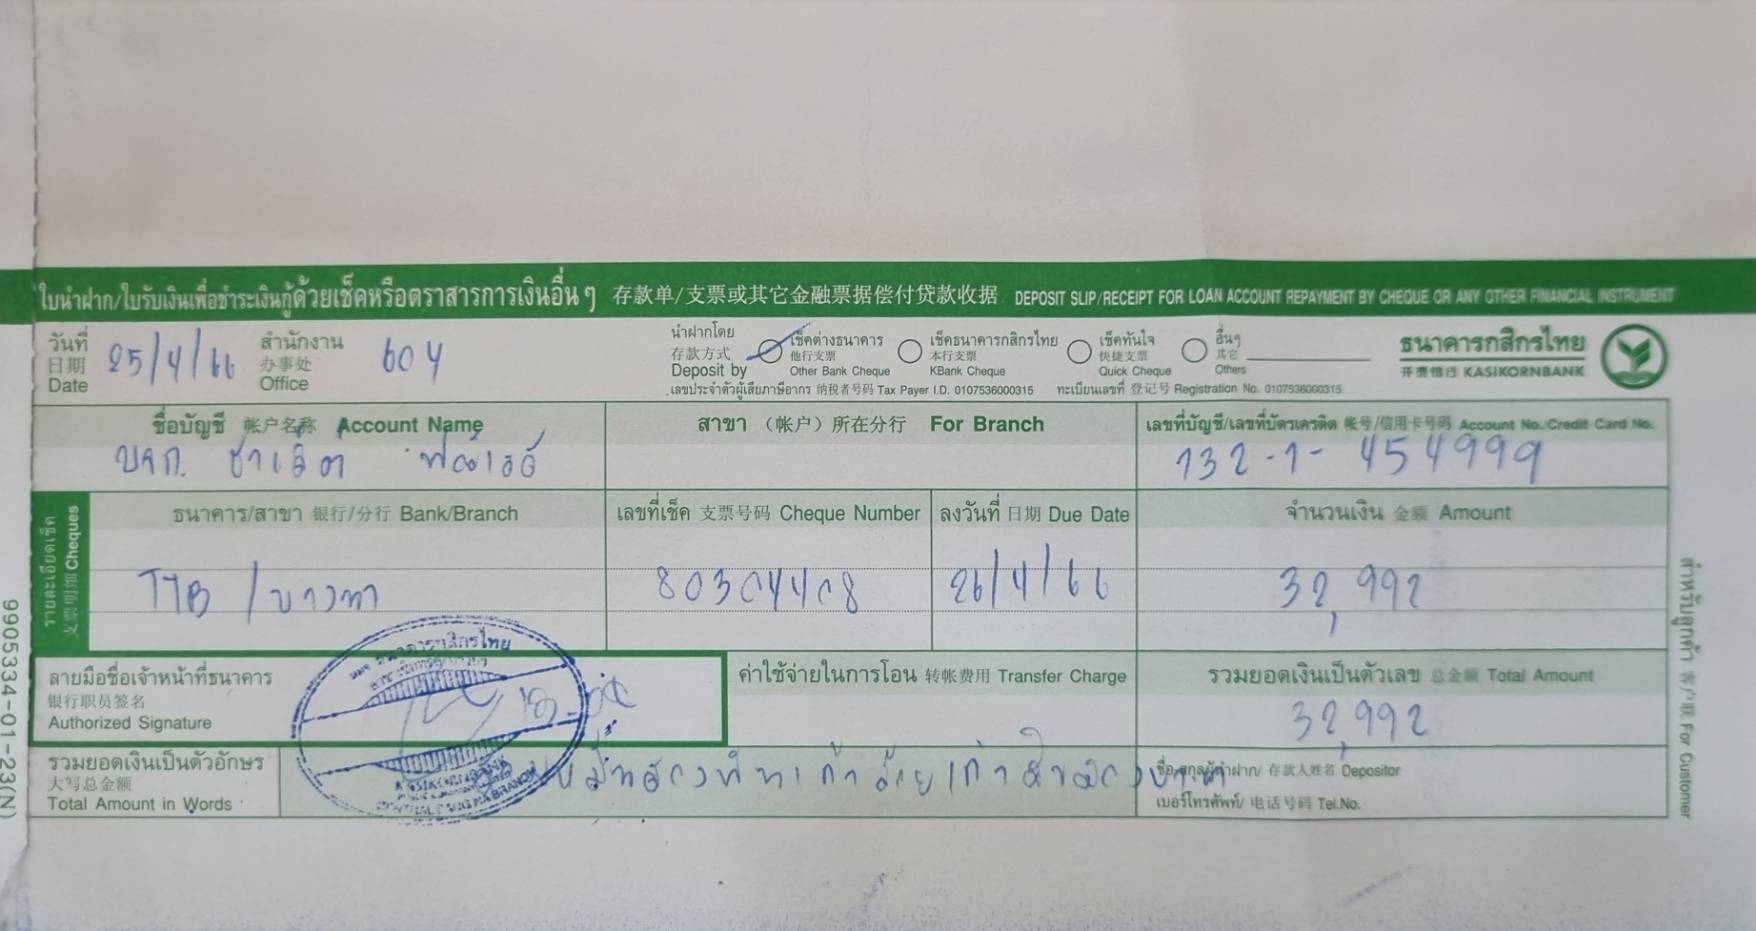 ใบนำฝาก/ใบรับเงินเพื่อชำระเงินกู้ด้วยเช็คหรือตราสารการเงินอื่น ๆ 存款单/支票或其它金融票据偿付贷款收据 DEPOSIT SLIP/RECEIPT FOR LOAN ACCOUNT REPAYMENT BY CHEQUE OR ANY OTHER FINANCIAL INSTRUMENT
วันที่ 日期 Date 25/4/66
สำนักงาน 办事处 Office 604
นำฝากโดย 存款方式 Deposit by
เช็คต่างธนาคาร 他行支票 Other Bank Cheque
เช็คธนาคารกสิกรไทย 本行支票 KBank Cheque
เช็คทันใจ 快捷支票 Quick Cheque
อื่นๆ 其它 Others
ธนาคารกสิกรไทย
开泰银行 KASIKORNBANK
เลขประจำตัวผู้เสียภาษีอากร 纳税者号码 Tax Payer I.D. 0107536000315 ทะเบียนเลขที่ 登记号 Registration No. 0107536000315
ชื่อบัญชี 帐户名称 Account Name
บจก.
สาขา （帐户）所在分行 For Branch
เลขที่บัญชี/เลขที่บัตรเครดิต 帐号/信用卡号码 Account No./Credit Card No.
132-1-454999
รายละเอียดเช็ค 支票明细 Cheques
ธนาคาร/สาขา 银行/分行 Bank/Branch
เลขที่เช็ค 支票号码 Cheque Number
ลงวันที่ 日期 Due Date
จำนวนเงิน 金额 Amount
TTB /
80304408
26/4/66
32,992
ลายมือชื่อเจ้าหน้าที่ธนาคาร
银行职员签名
Authorized Signature
ค่าใช้จ่ายในการโอน 转帐费用 Transfer Charge
รวมยอดเงินเป็นตัวเลข 总金额 Total Amount
32,992
รวมยอดเงินเป็นตัวอักษร
大写总金额
Total Amount in Words
สามหมื่นสองพันเก้าร้อยเก้าสิบสองบาท
ชื่อ-สกุลผู้นำฝาก/ 存款人姓名 Depositor
เบอร์โทรศัพท์/ 电话号码 Tel.No.
สำหรับลูกค้า 客户联 For Customer
9905334-01-23(N)